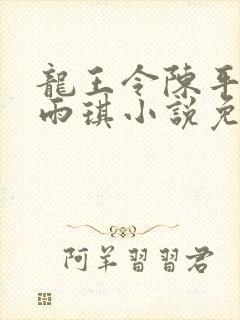 龍王令陳平
雨琪小說免
阿羊習習君